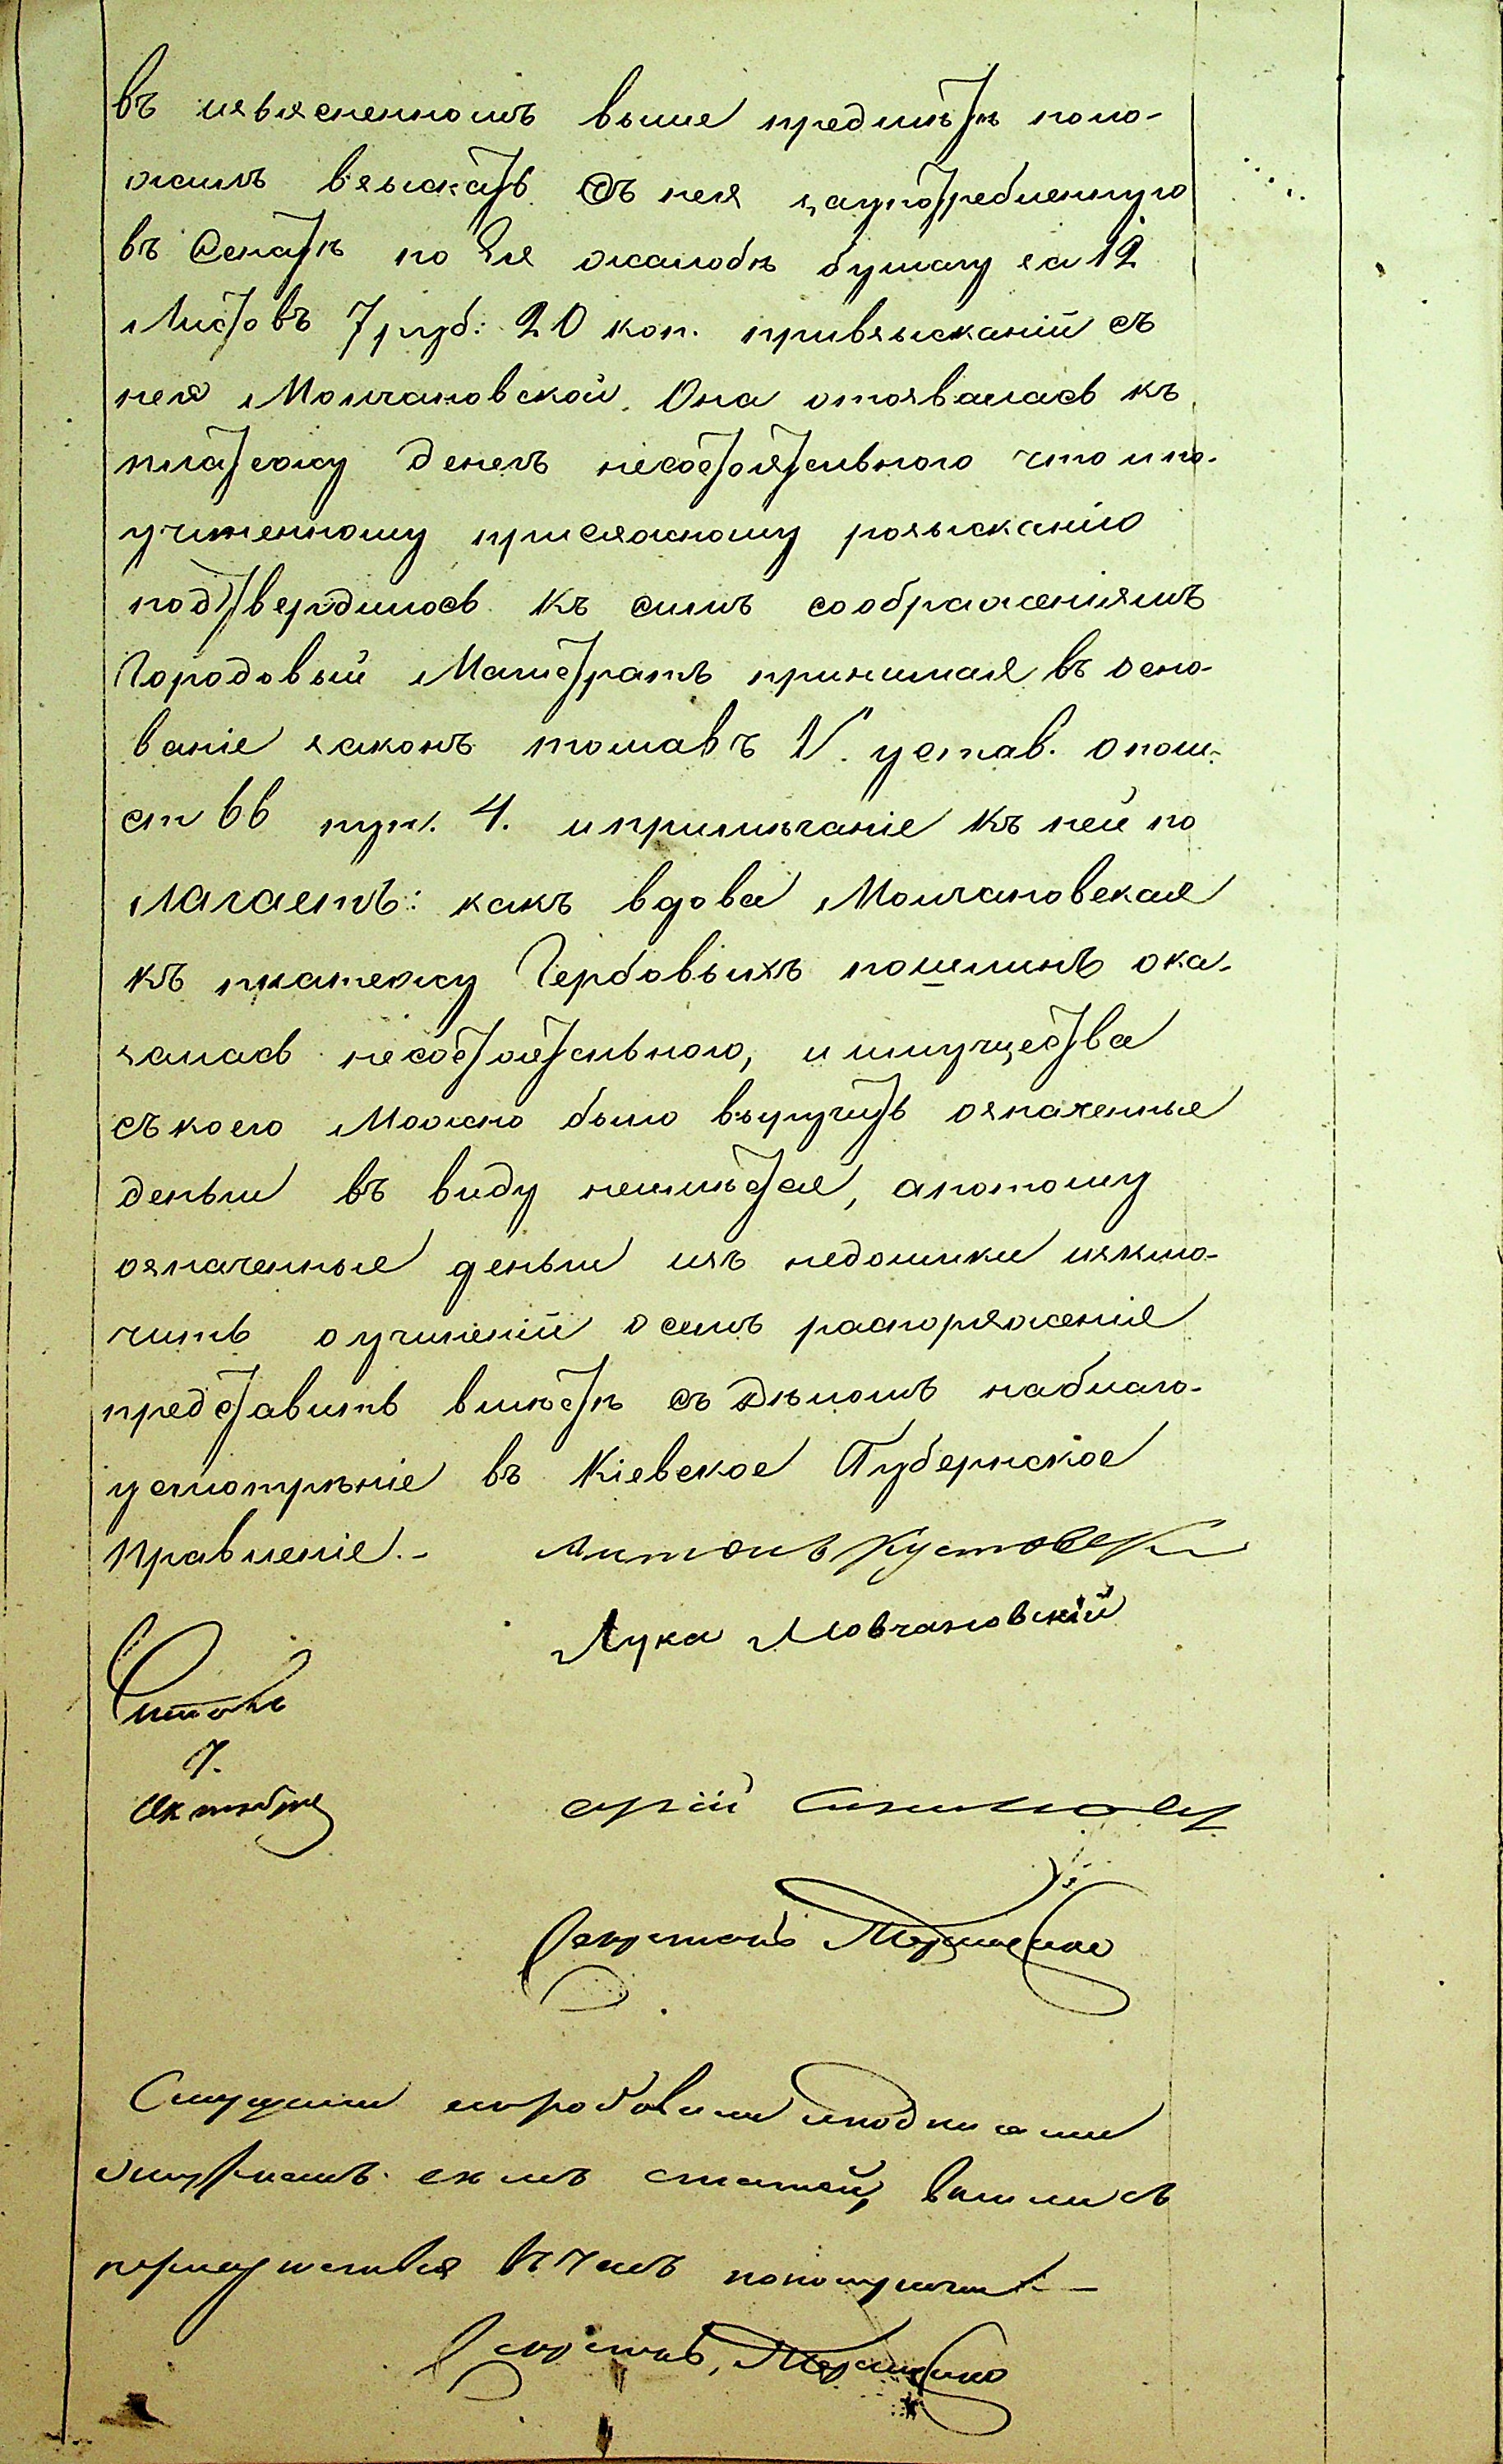 въ изъясненномъ выше предметѣ поло-
жилъ взыскать съ нея заупотребленную
въ Сенатѣ по Ея жалобѣ бумагу за 12
Листовъ 7 руб: 20 коп. привзысканіи съ
нея Молчановской. Она отозвалась къ
платежу денегъ несостоятельною что и по-
учиненному присяжному розысканію
подтвердилось къ симъ соображеніямъ
Городовый Магистратъ принимая въ осно-
ваніе законъ томавъ V. устав. о пош.
ст 66 пун. 4. и примѣчаніе къ ней по
лагаетъ: какъ вдова Молчановская
къ платежу Гербовыхъ пошлинъ ока-
залась несостоятельною, и имущества
съ коего Можно было выручить означенные
деньги въ виду неимѣется, а потому
означенные деньги изъ недоимки изклю-
чить о учиненіи о семъ распоряженія
представить вмѣстѣ съ Дѣломъ наблаго-
усмотрѣніе въ Кіевское Губернское
Правленіе.- Антонъ
Лука Мовчановскій
7.
Октября
Секретарь
Слушали и подписали
семъ статей,
Секретарь,